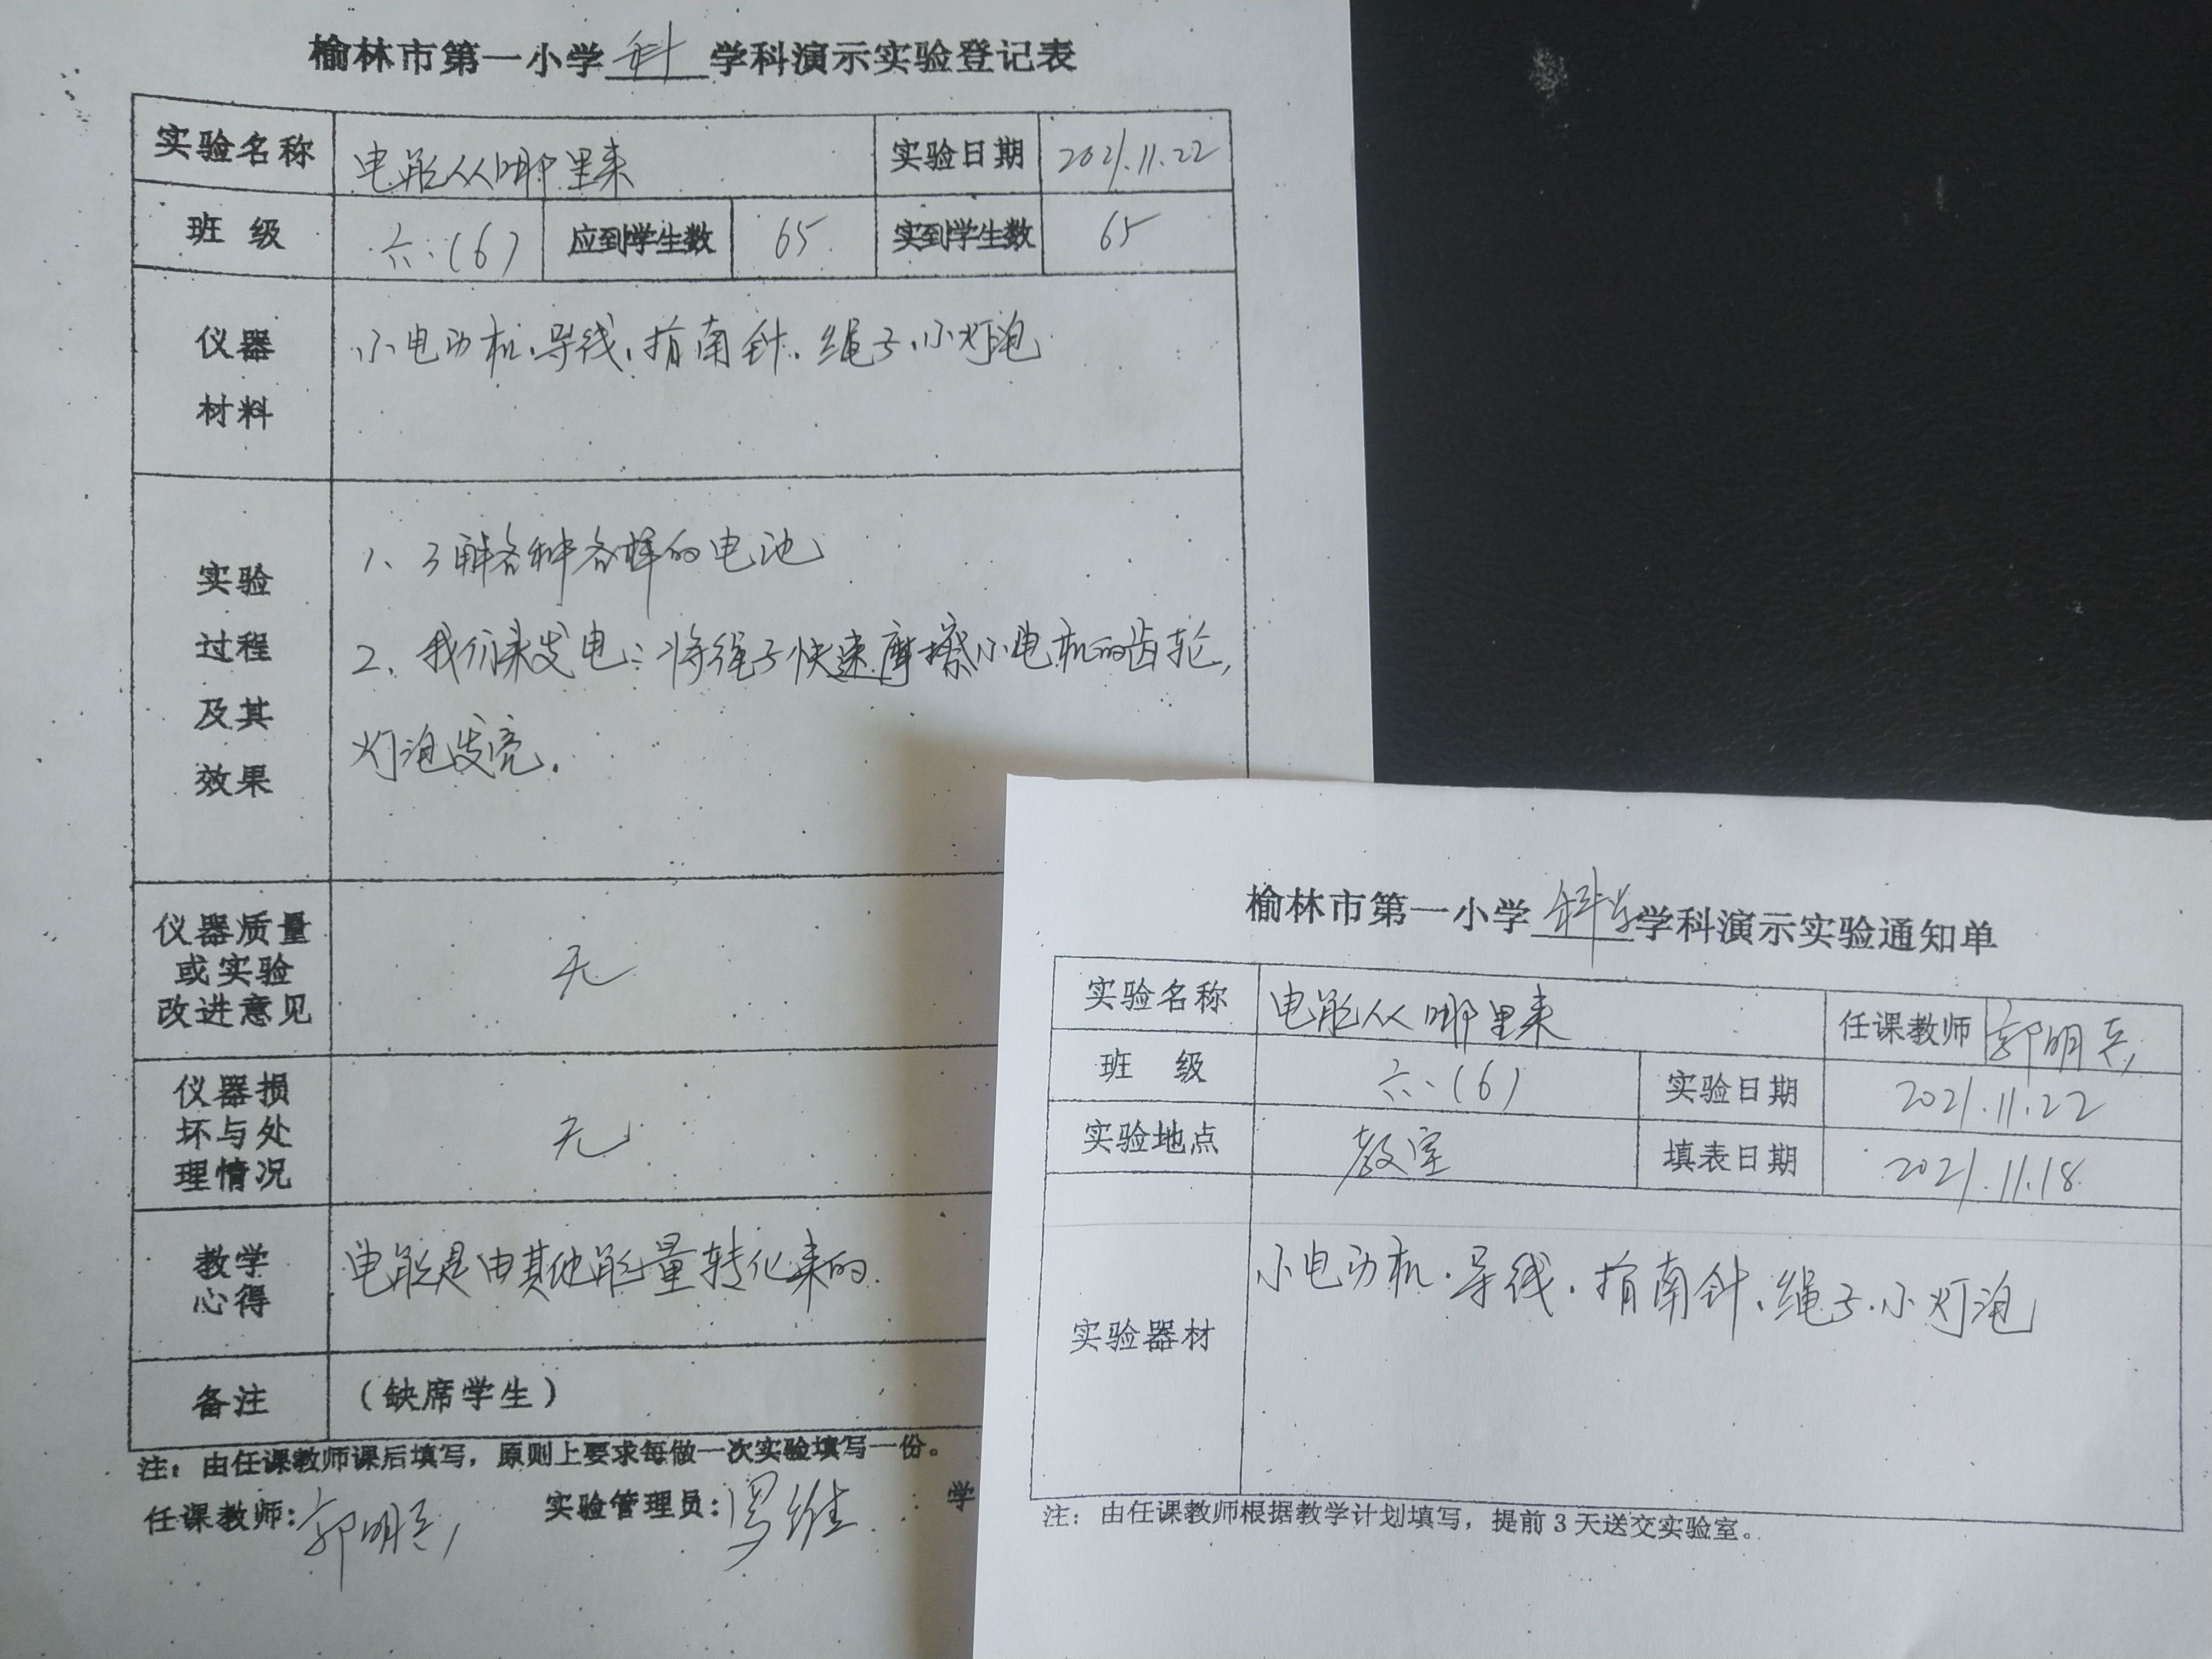 榆林市第一小学 科 学科演示实验登记表
实验名称 电能从哪里来 实验日期 2021.11.22
班 级 六.(6) 应到学生数 65 实到学生数 65
仪器 小电动机.导线.指南针.绳子.小灯泡
材料
1、了解各种各样的电池
实验
过程 2、我们来发电:将绳子快速摩擦小电机的齿轮,
及其
效果 灯泡发亮.
仪器质量
或实验 无
改进意见
仪器损
坏与处 无
理情况
教学 电能是由其他能量转化来的.
心得
备注 (缺席学生)
注:由任课教师课后填写,原则上要求每做一次实验填写一份。
任课教师: 郭明 实验管理员: 维 学
榆林市第一小学 科学 学科演示实验通知单
实验名称 电能从哪里来 任课教师 郭明
班 级 六、(6) 实验日期 2021.11.22
实验地点 教室 填表日期 2021.11.18
小电动机.导线.指南针.绳子.小灯泡
实验器材
注:由任课教师根据教学计划填写,提前3天送交实验室。